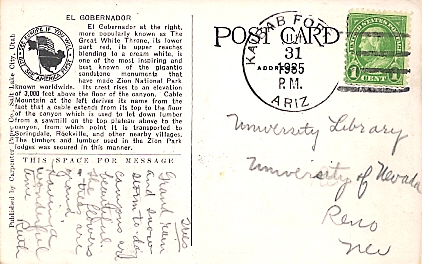 EL GOBERNADOR
El Gobernador at the right,
more popularly known as The
Great White Throne, its lower
part red, its upper reaches
blending to a cream white, is
one of the most inspiring and
best known of the gigantic
sandstone monuments that
have made Zion National Park
known worldwide. Its crest rises to an elevation
of 3,000 feet above the floor of the canyon. Cable
Mountain at the left derives its name from the
fact that a cable extends from its top to the floor
of the canyon which is used to let down lumber
from a sawmill on the top plateau along to the
canyon, from which point it is transported to
Springdale, Rockville, and other nearby villages.
The timbers and lumber used in the Zion Park
lodges was secured in this manner.
THIS SPACE FOR MESSAGE
Grand
and snow
canyons and
beautiful
the flowers
are
wonderful
time
Ruth
Published by Carpenter Paper Co., Salt Lake City, Utah
SEE EUROPE IF YOU WILL
BUT SEE AMERICA FIRST
POST CARD
ADDRESS
31
1935
P.M.
ARIZ
1 CENT 1
University Library
University of Nevada
Reno
Nev